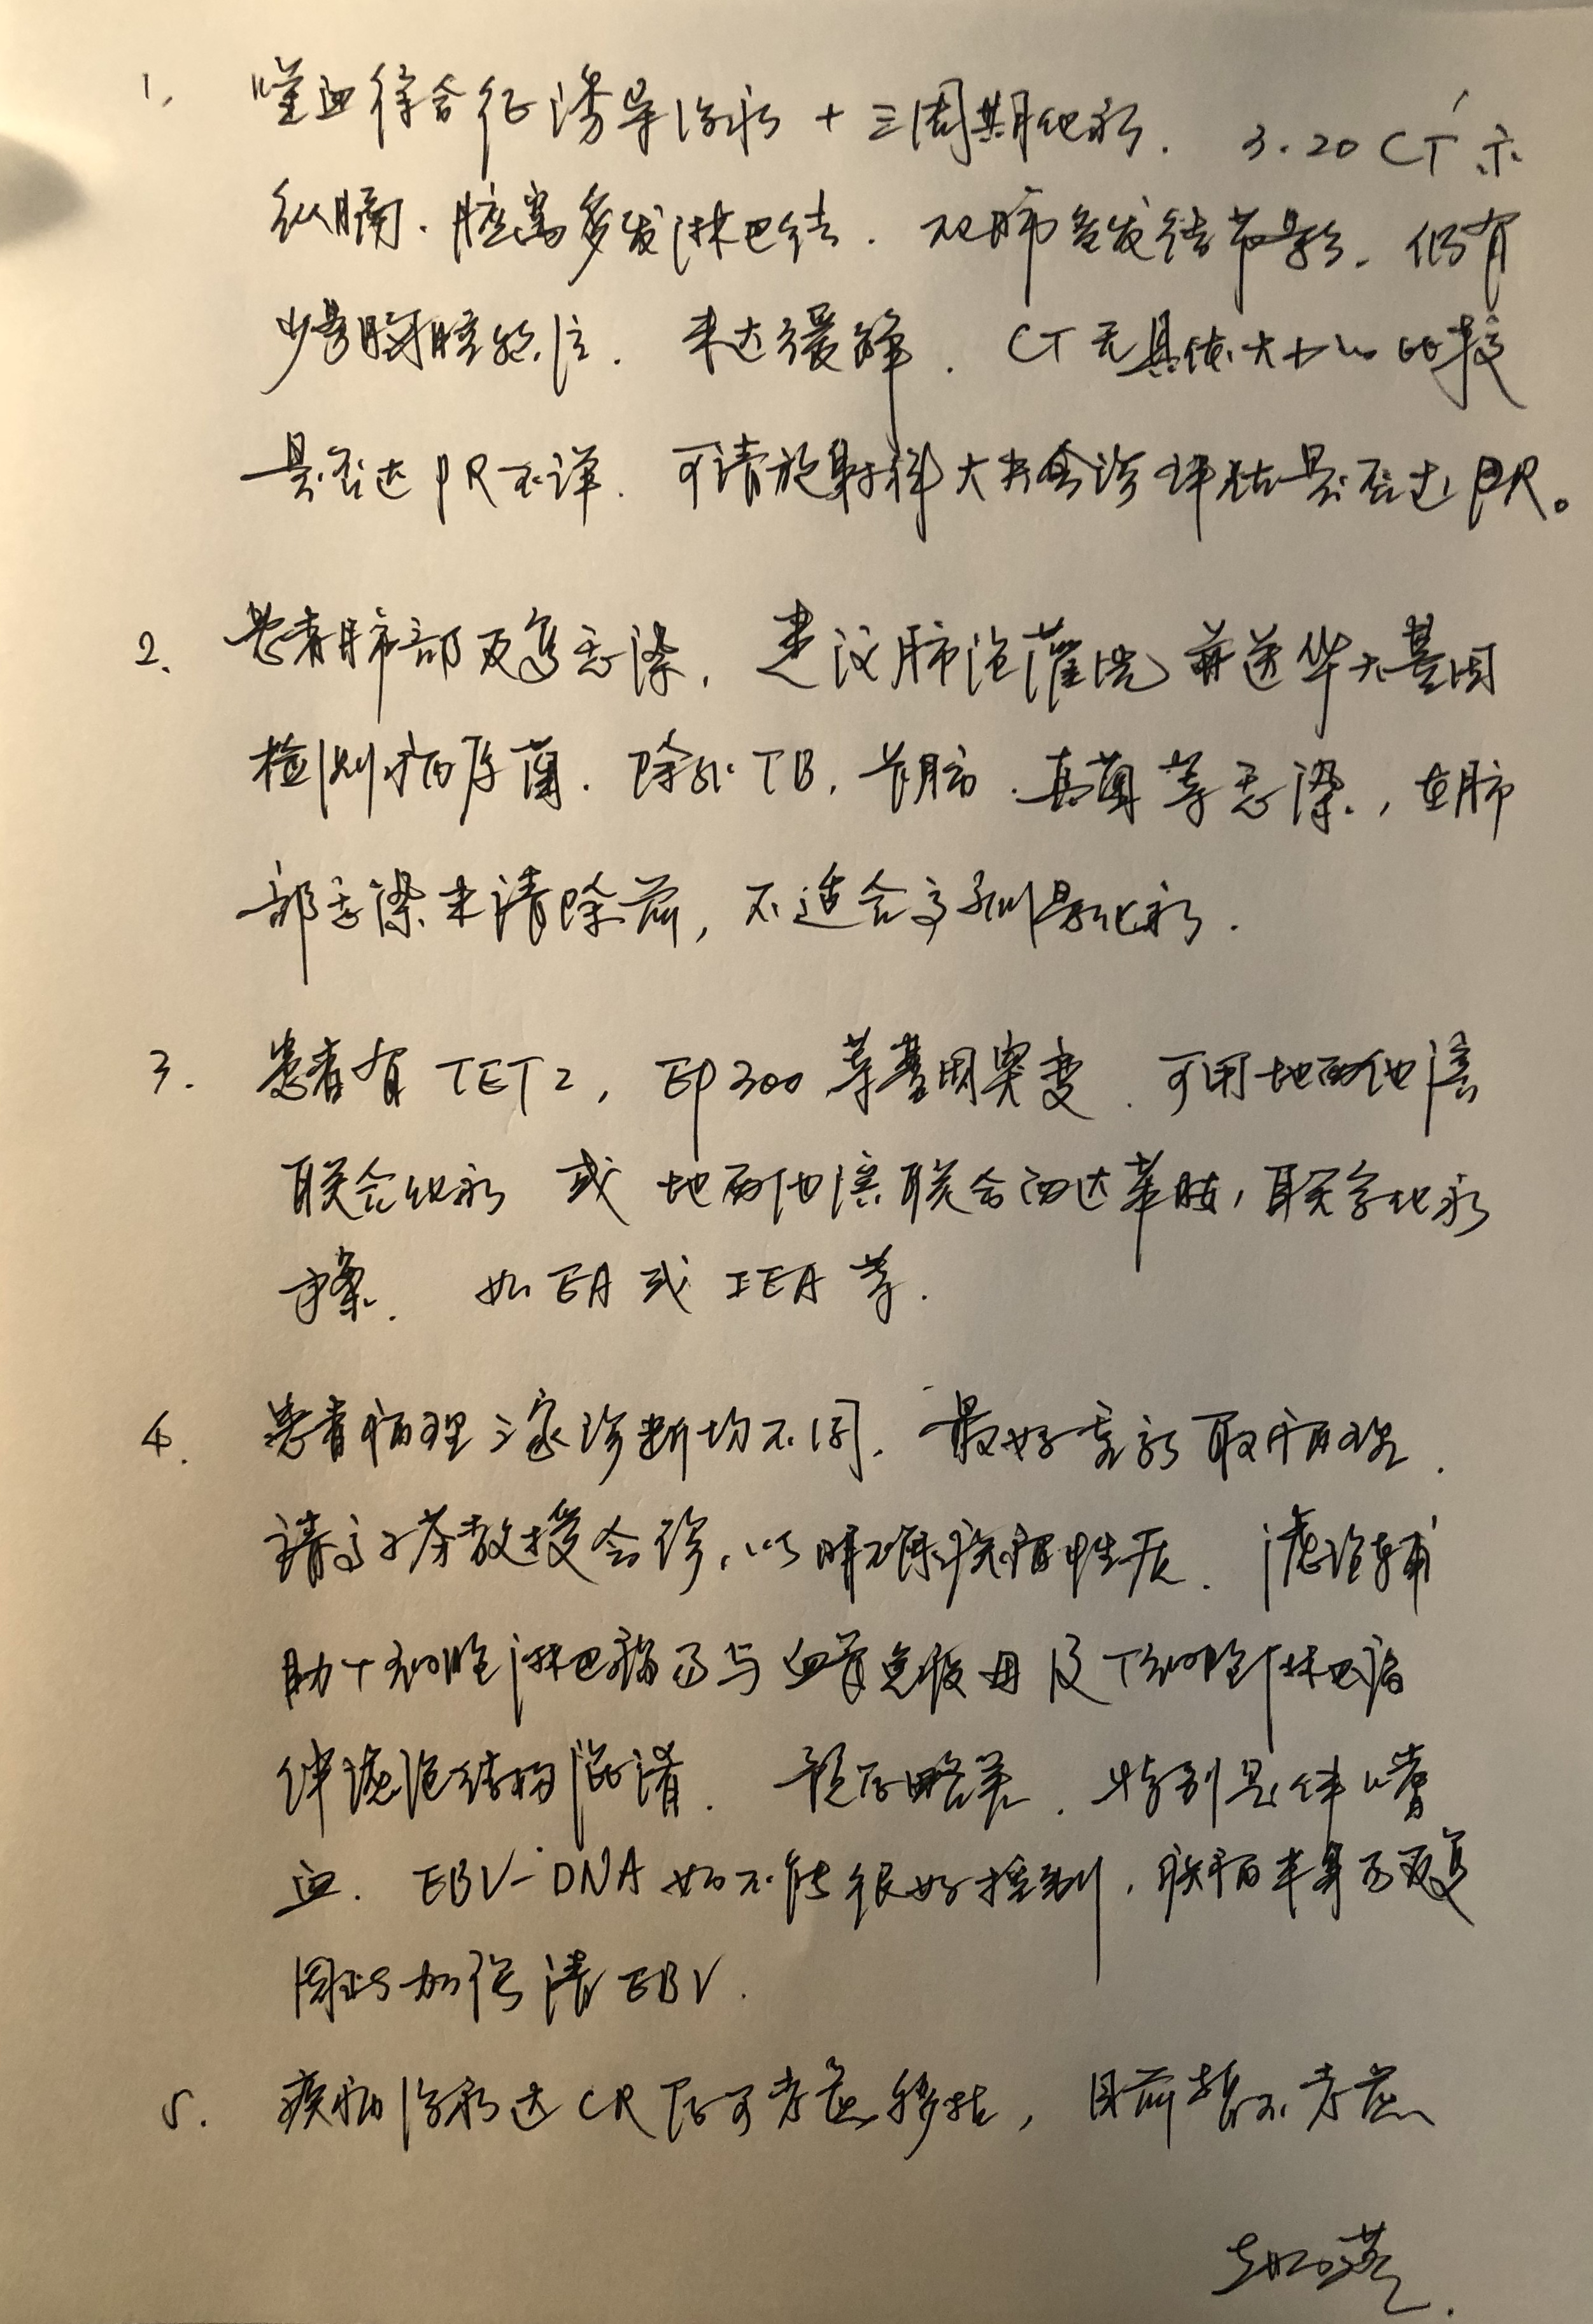 1. 噬血综合征诱导治疗 + 三周期化疗. 3.20 CT示
纵膈.腔窝多发淋巴结. 双肺多发结节影. 仍有
少量胸腔积液. 未达缓解. CT无具体大小比较
是否达PR不详. 可请放射科大夫会诊评估是否达PR。
2. 患者肺部反复感染, 建议肺泡灌洗并送华大基因
检测病原菌. 除外TB, 真菌等感染, 在肺
部感染未清除前, 不适合高剂量化疗.
3. 患者有TET2, EP300等基因突变. 可用地西他滨
联合化疗 或 地西他滨联合西达苯胺, 联合化疗
方案. 如EA或IEA等.
4. 患者病理三家诊断均不同. 最好重新取病理.
请高子芬教授会诊, 以明确疾病性质. 滤泡辅
助T细胞淋巴瘤易与血管免疫母及T细胞淋巴瘤
伴滤泡结构混淆. 预后略差. 特别是伴嗜
血. EBV-DNA如不能很好控制, 疾病半年易反复
同时加强清EBV.
5. 疾病治疗达CR后可考虑移植, 目前暂不考虑